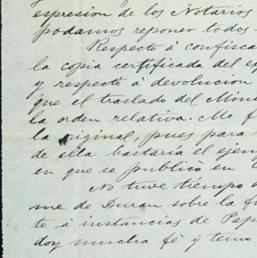 expresion de los Notarios
podamos reponer todos
Respecto á confisca
la copia certificada del ex
y respecto á devolucion
que el traslado del Mini
la orden relativa. Me f
la original, pues para
de ella bastaria el ejem
en que se publicó en
No tuve tiempo
me de Duran sobre la fu
to, á instancias de Pap
doy mucha fé y temo